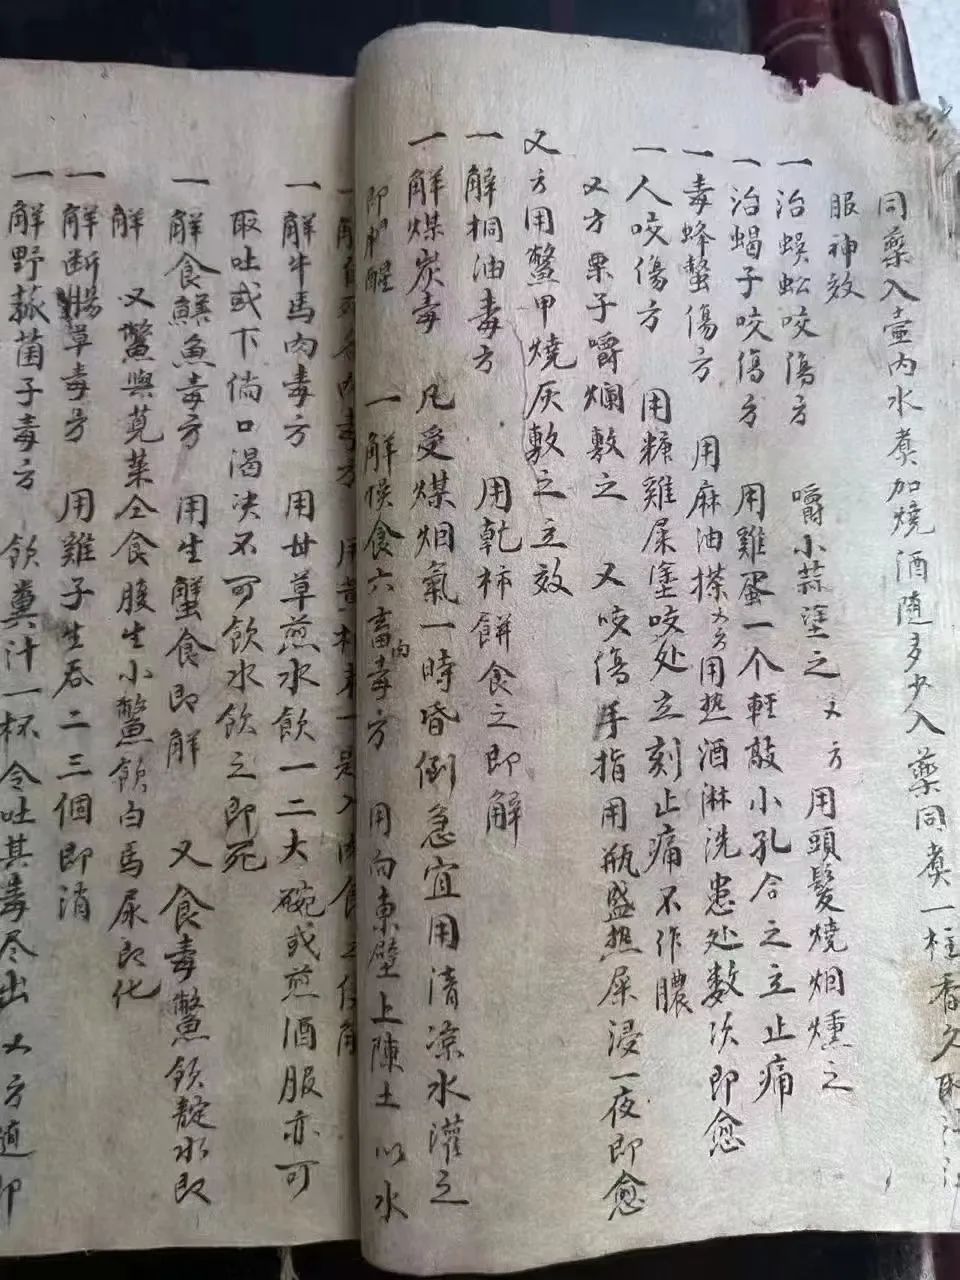 同藥入壶内水煑加燒酒随多少入藥同煑一柱香久取
服神效
一治蜈蚣咬傷方 嚼小蒜塗之 又方用頭髮燒烟燻之
一治蝎子咬傷方 用雞蛋一个輕敲小孔合之立止痛
一毒蜂螫傷方 用麻油搽 又方用热酒淋洗患处数次即愈
一人咬傷方 用糠雞屎塗咬处立刻止痛不作膿
又方栗子嚼爛敷之 又咬傷手指用瓶盛热屎浸一夜即愈
又方用鱉甲燒灰敷之立效
一解桐油毒方 用乾柿餅食之即解
一解煤炭毒 凡受煤烟氣一時昏倒急宜用清凉水灌之
即醒 一解悮食六畜肉毒方 用向東壁上陳土以水
一解牛馬肉毒方 用甘草煎水飲一二大碗或煎酒服亦可
取吐或下倘口渴决不可飲水飲之即死
一解食鱔魚毒方 用生蟹食即解 又食毒鱉飲靛水即
解 又鱉與莧菜仝食腹生小鱉飲白馬尿即化
一解断腸草毒方 用雞子生吞二三個即消
一解野菰菌子毒方 飲糞汁一杯令吐其毒尽出 又方